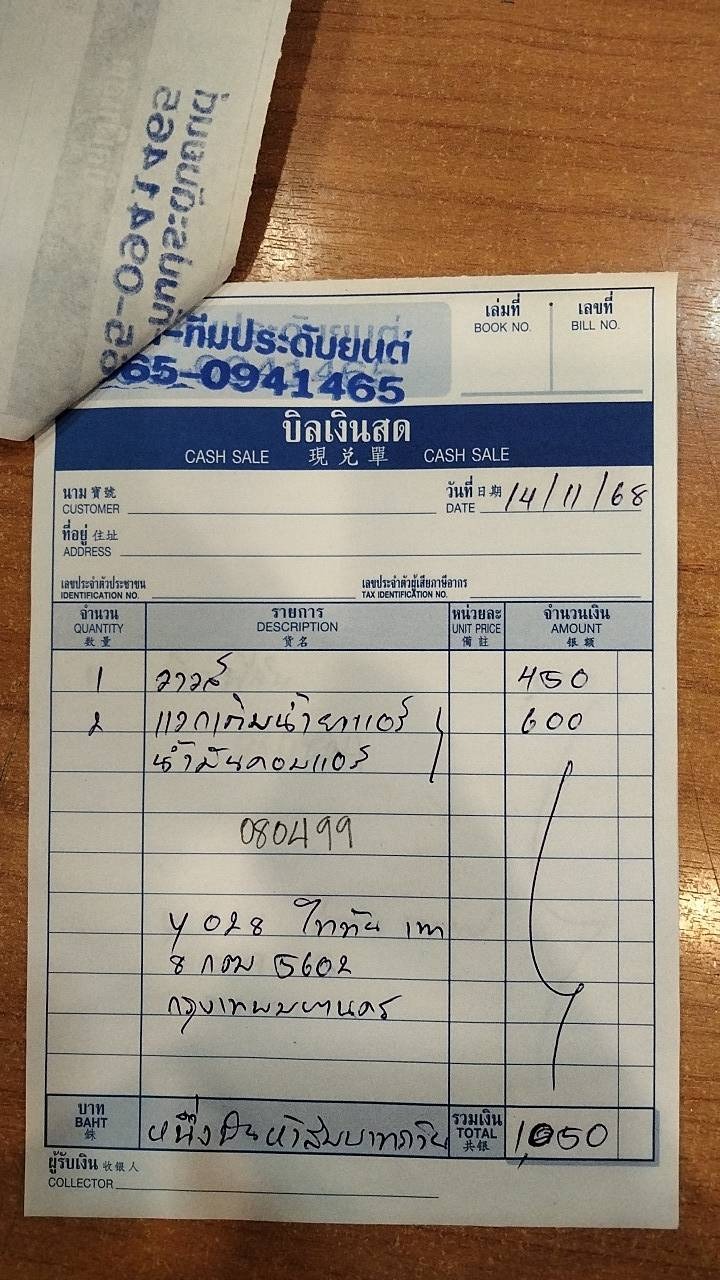 -ทีมประดับยนต์
65-0941465
เล่มที่
BOOK NO.
เลขที่
BILL NO.
บิลเงินสด
CASH SALE 現兑單 CASH SALE
นาม 寶號
CUSTOMER
วันที่ 日期
DATE 14/11/68
ที่อยู่ 住址
ADDRESS
เลขประจำตัวประชาชน
IDENTIFICATION NO.
เลขประจำตัวผู้เสียภาษีอากร
TAX IDENTIFICATION NO.
จำนวน
QUANTITY
数量
รายการ
DESCRIPTION
貨名
หน่วยละ
UNIT PRICE
備註
จำนวนเงิน
AMOUNT
銀額
1 วาวล์ 450
2 แวคเติมน้ำยาแอร์ 600
น้ำมันคอมแอร์
080499
028 ไททัน เทา
8 กฒ 5602
กรุงเทพมหานคร
บาท
BAHT
銖
หนึ่งพันห้าสิบบาทถ้วน
รวมเงิน
TOTAL
共銀
1,050
ผู้รับเงิน 收銀人
COLLECTOR